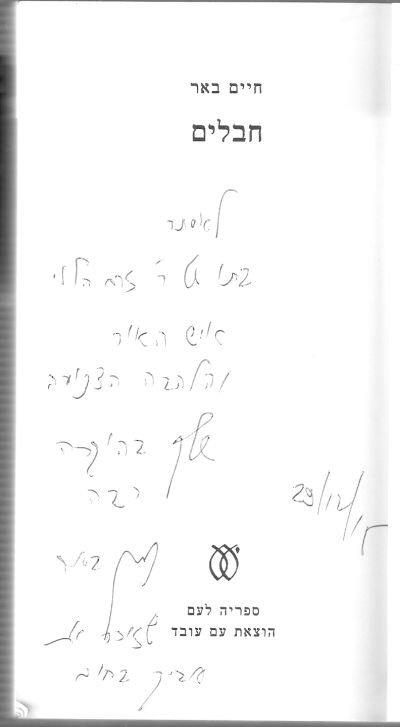 חיים באר
חבלים
לאסתר
בתו של ר' זרח הלוי
איש האור
והלהבה הצנועה
שלך בהוקרה
רבה
29/12/15
חיים באר
שזוכר את
אביך בחום
ספריה לעם
הוצאת עם עובד